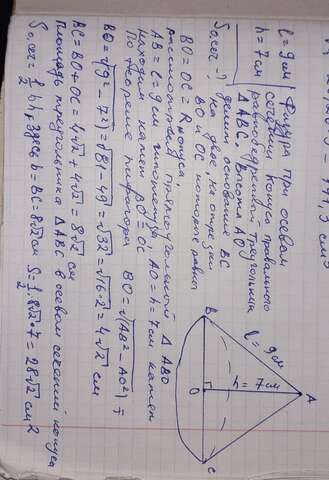 l = 9 см
h = 7 см
Sо.сеч -?
Фигура при осевом
сечении конуса правильного
равнобедренный треугольник
ΔABC. Высота AO
делит основание BC
на двое на отрезки
BO и OC которые равны
BO = OC = R конуса,
рассмотрим прямоугольный Δ ABO
AB = l = 9 см гипотенуза, AO = h = 7 см катет
находим катет BO = OC
По теореме пифагора BO = √(AB² - AO²) =
BO = √(9² - 7²) = √81 - 49 = √32 = √16·2 = 4√2 см
BC = BO + OC = 4√2 + 4√2 = 8√2 см
Площадь треугольника ΔABC в осевом сечении конуса
Sо.сеч = 1/2 b h, здесь b = BC = 8√2 см S = 1/2 · 8√2 · 7 = 28√2 см2
B
l = 9 см
O
h = 7 см
A
C